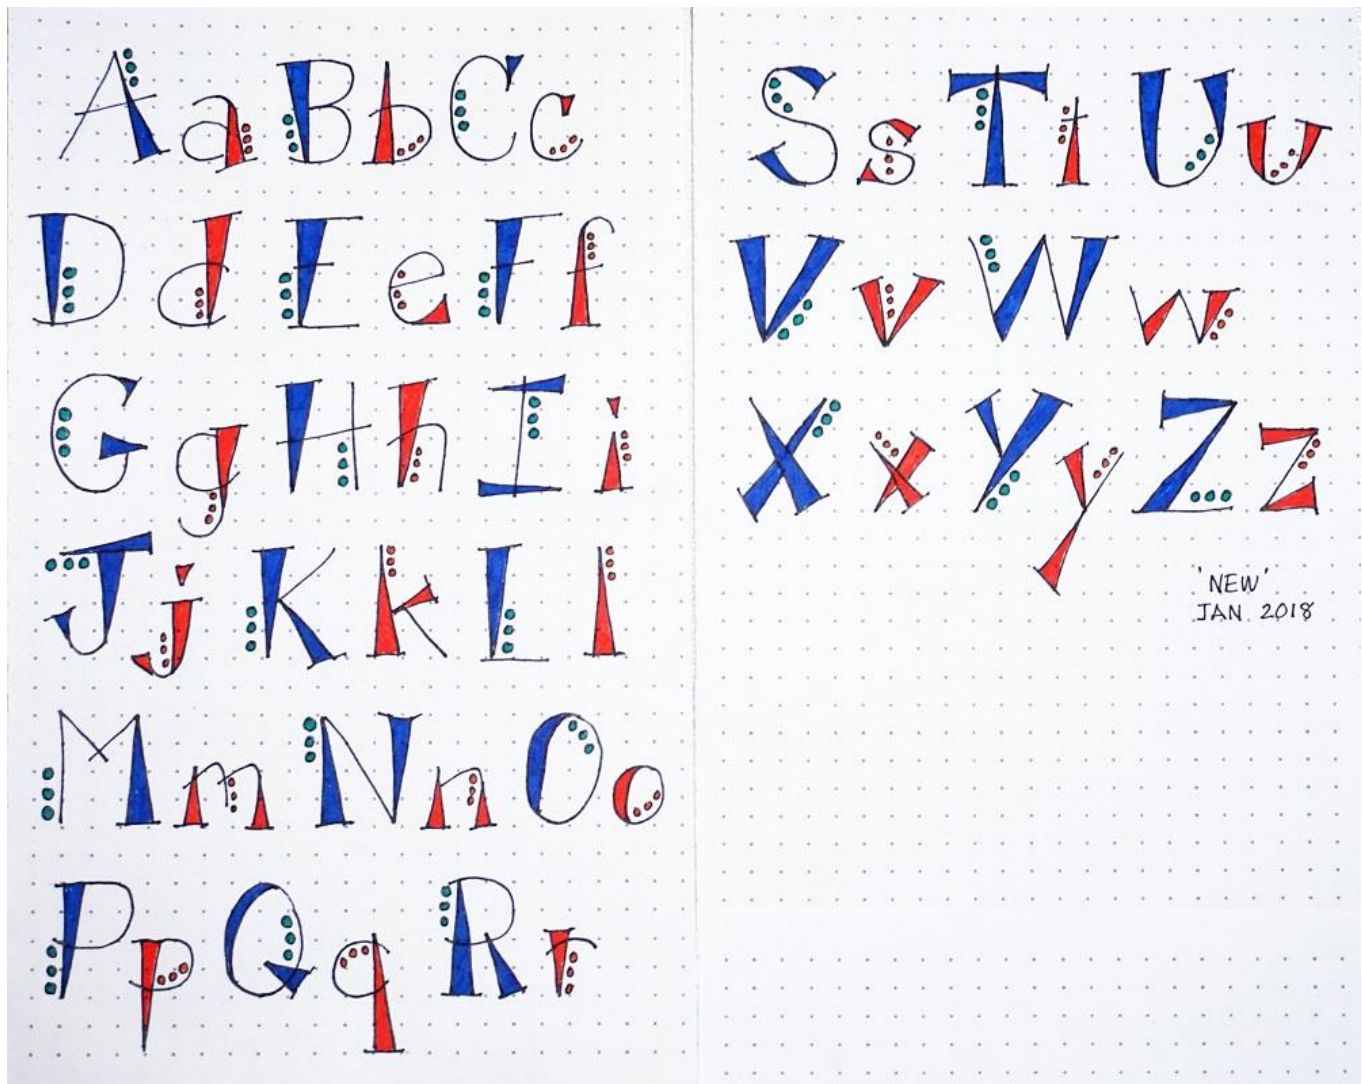 A a B b C c
D d E e F f
G g H h I i
J j K k L l
M m N n O o
P p Q q R r
S s T t U u
V v W w
X x Y y Z z
'NEW'
JAN. 2018